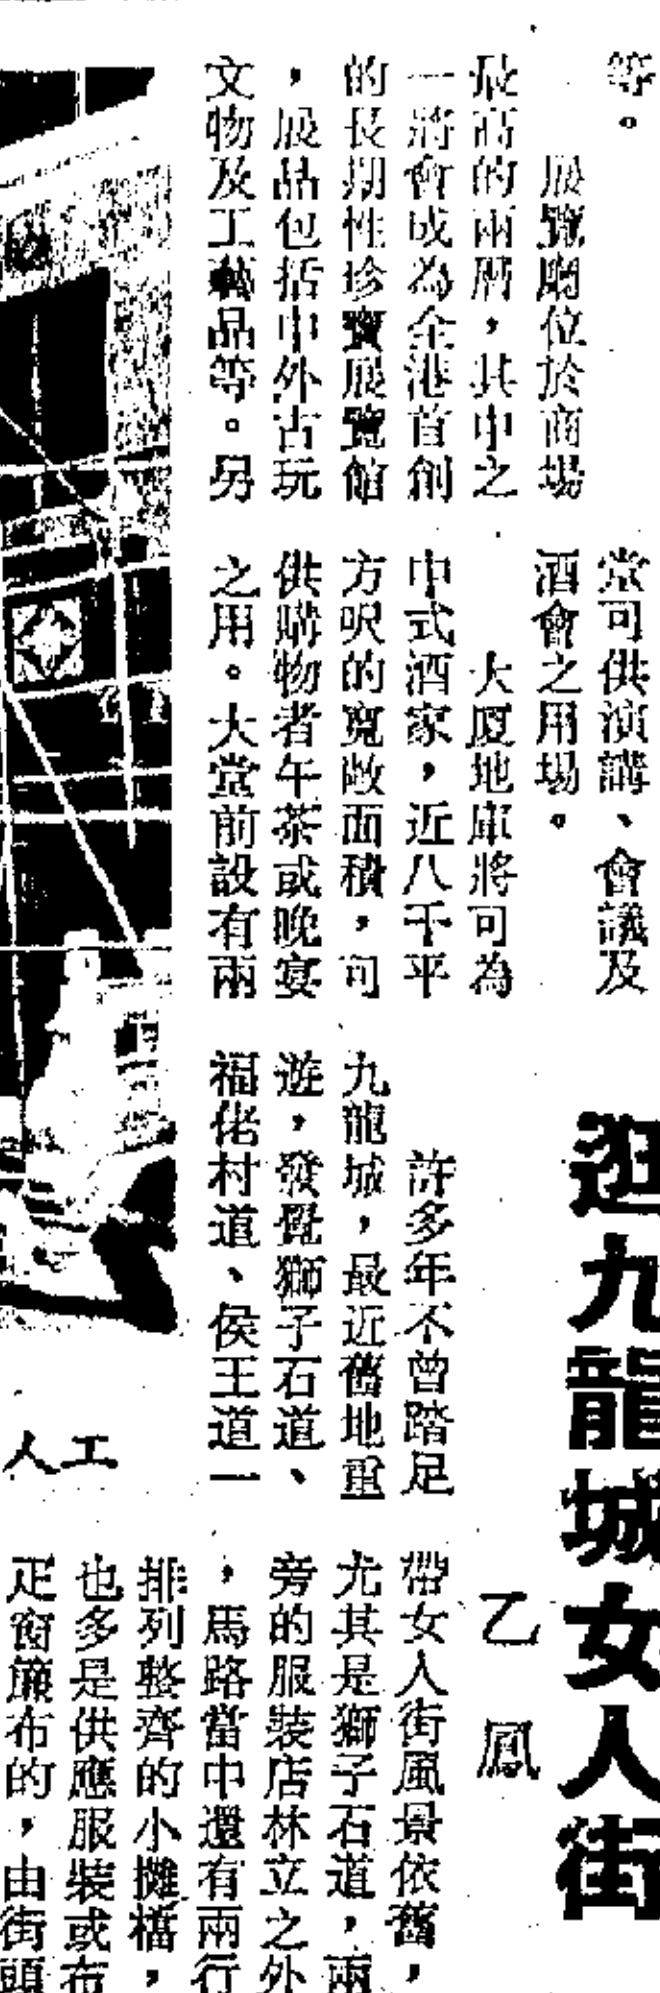 等。
展覽廳位於商場
最高的兩層，其中之
一將會成為全港首創
的長期性珍寶展覽館
，展品包括中外古玩
文物及工藝品等。另
堂可供演講、會議及
酒會之用場。
大厦地庫將可為
中式酒家，近八千平
方呎的寬敞面積，可
供購物者午茶或晚宴
之用。大堂前設有兩
逛九龍城女人街
乙鳳
許多年不曾踏足
九龍城，最近舊地重
遊，發覺獅子石道、
福佬村道、侯王道一
帶女人街風景依舊，
尤其是獅子石道，兩
旁的服裝店林立之外
，馬路當中還有兩行
排列整齊的小攤檔，
也多是供應服裝或布
疋窗簾布的，由街頭
工人